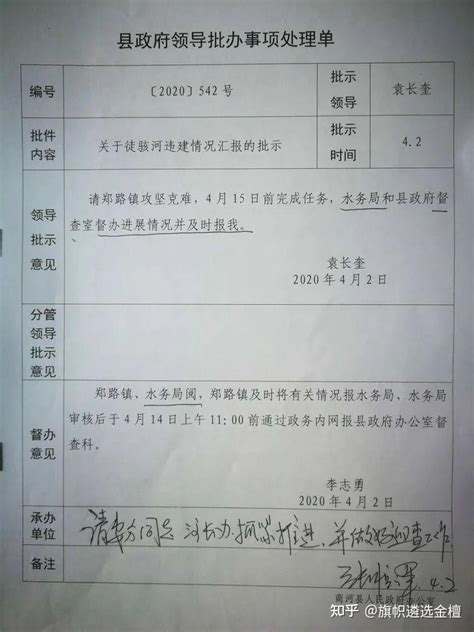 县政府领导批办事项处理单
编号 〔2020〕542 号 批示领导 袁长奎
批件内容 关于徒骇河违建情况汇报的批示 批示时间 4.2
领导批示意见
请郑路镇攻坚克难，4 月 15 日前完成任务，水务局和县政府督
查室督办进展情况并及时报我。
袁长奎
2020 年 4 月 2 日
分管领导批示意见
督办意见
郑路镇、水务局阅，郑路镇及时将有关情况报水务局，水务局
审核后于 4 月 14 日上午 11：00 前通过政务内网报县政府办公室督
查科。
李志勇
2020 年 4 月 2 日
承办单位
河长办抓紧推进，并做好迎查工作
备注
4.2
商河县人民政府办公室
知乎 @旗帜遴选金檀